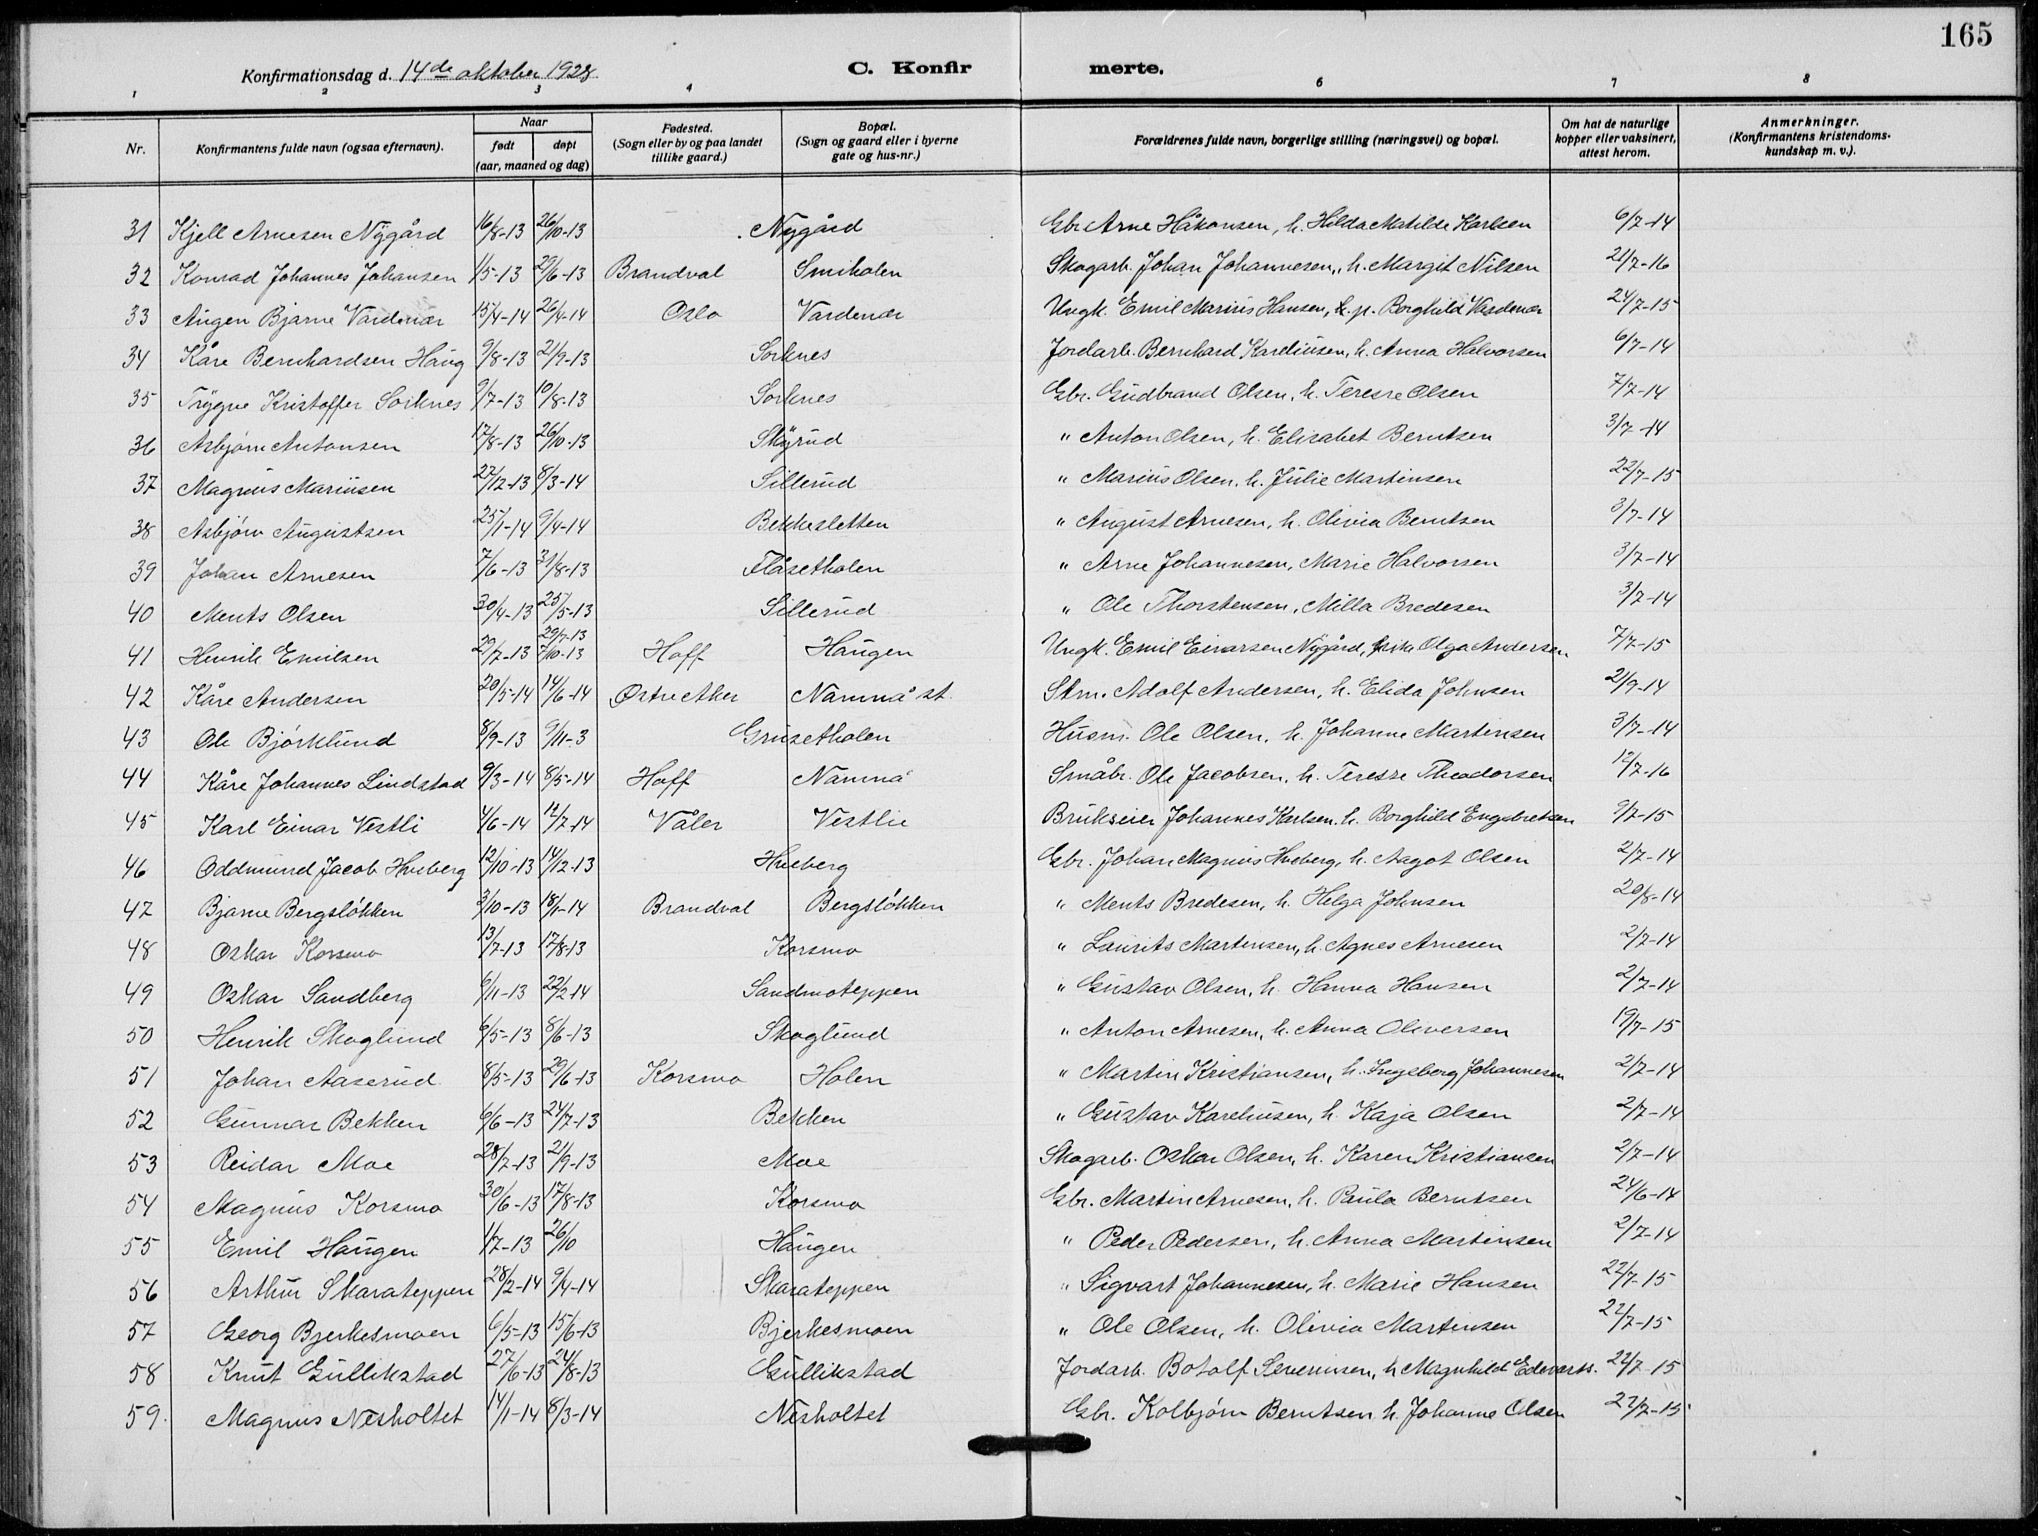 165
Konfirmationsdag d. 14de oktober 1928 C. Konfir merte.
1 2 3 4 6 7 8
Nr. Konfirmantens fulde navn (ogsaa efternavn). Naar født døpt (aar, maaned og dag) Fødested. (Sogn eller by og paa landet tillike gaard.) Bopæl. (Sogn og gaard eller i byerne gate og hus-nr.) Forældrenes fulde navn, borgerlige stilling (næringsvei) og bopæl. Om hat de naturlige kopper eller vaksinert, attest herom. Anmerkninger. (Konfirmantens kristendoms-kundskap m. v.).
31 Kjell Arnesen Nygård 16/8-13 26/10-13 Nygård Gbr. Arne Håkonsen, h. Hilda Matilde Karlsen 6/7-14
32 Konrad Johannes Johansen 1/5-13 29/6-13 Brandval Smiholen Skogarb. Johan Johannesen, h. Margit Nilsen 21/7-16
33 Augen Bjarne Vardenær 15/4-14 26/4-14 Oslo Vardenær Ungk. Emil Marius Hansen, p. Borghild Vardenær 24/7-15
34 Kåre Bernhardsen Haug 9/8-13 21/9-13 Sorknes Jordarb. Bernhard Kareliusen, h. Anna Halvorsen 6/7-14
35 Trygve Kristoffer Sorknes 9/7-13 10/8-13 Sorknes Gbr. Gudbrand Olsen, h. Terese Olsen 7/7-14
36 Asbjørn Antonsen 17/8-13 26/10-13 Skyrud " Anton Olsen, h. Elisabet Berntsen 3/7-14
37 Magnus Mariusen 27/12-13 8/3-14 Sillerud " Marius Olsen, h. Julie Martinsen 22/7-15
38 Asbjørn Augustsen 25/1-14 9/4-14 Bekkesletten " August Arnesen, h. Olivia Berntsen 3/7-14
39 Johan Arnesen 7/6-13 31/8-13 Flåsetholen " Arne Johannesen, Marie Halvorsen 3/7-14
40 Ments Olsen 30/4-13 25/5-13 Sillerud " Ole Thorstensen, Milla Bredesen 3/7-14
41 Henrik Emilsen 29/7-13 29/7-13 7/10-13 Hoff Haugen Ungk. Emil Einarsen Nygård, Olga Andersen 7/7-15
42 Kåre Andersen 20/5-14 14/6-14 Østre Aker Namnå st. Skm. Adolf Andersen, h. Elida Johnsen 21/9-14
43 Ole Bjørklund 8/9-13 9/11-3 Grusetholen Husm. Ole Olsen, h. Johanne Martinsen 3/7-14
44 Kåre Johannes Lindstad 9/3-14 8/5-14 Hoff Namnå Småbr. Ole Jacobsen, h. Terese Theodorsen 12/7-16
45 Karl Einar Vestli 4/6-14 12/7-14 Våler Vestlie Brukseier Johannes Karlsen, h. Borghild Engebretsen 9/7-15
46 Oddmund Jacob Hveberg 12/10-13 14/12-13 Hveberg Gbr. Johan Magnus Hveberg, h. Aagot Olsen 2/7-14
47 Bjarne Bergsløkken 3/10-13 18/1-14 Brandval Bergsløkken " Ments Bredesen, h. Helga Johnsen 20/8-14
48 Oskar Korsmo 13/7-13 17/8-13 Korsmo " Laurits Martinsen, h. Agnes Arnesen 2/7-14
49 Oskar Sandberg 6/11-13 22/2-14 Sandmoteppen " Gustav Olsen, h. Hanna Hansen 2/7-14
50 Henrik Skoglund 6/5-13 8/6-13 Skoglund " Anton Arnesen, h. Anna Oliversen 19/7-15
51 Johan Aaserud 8/5-13 29/6-13 Korsmo Holen " Martin Kristiansen, h. Ingeborg Johannesen 2/7-14
52 Gunnar Bekken 6/6-13 24/7-13 Bekken " Gustav Kareliusen, h. Kaja Olsen 2/7-14
53 Reidar Moe 28/7-13 21/9-13 Moe Skogarb. Oskar Olsen, h. Karen Kristiansen 2/7-14
54 Magnus Korsmo 30/6-13 17/8-13 Korsmo Gbr. Martin Arnesen, h. Paula Berntsen 24/6-14
55 Emil Haugen 1/7-13 26/10 Haugen " Peder Pedersen, h. Anna Martinsen 2/7-14
56 Arthur Skarateppen 28/2-14 9/4-14 Skarateppen " Sigvart Johannesen, h. Marie Hansen 22/7-15
57 Georg Bjerkesmoen 6/5-13 15/6-13 Bjerkesmoen " Ole Olsen, h. Olivia Martinsen 22/7-15
58 Knut Gullikstad 27/6-13 24/8-13 Gullikstad Jordarb. Botolf Severinsen, h. Magnhild Edvards. 22/7-15
59. Magnus Nesholtet 14/1-14 8/3-14 Nesholtet Gbr. Kolbjørn Berntsen h. Johanne Olsen 22/7-15